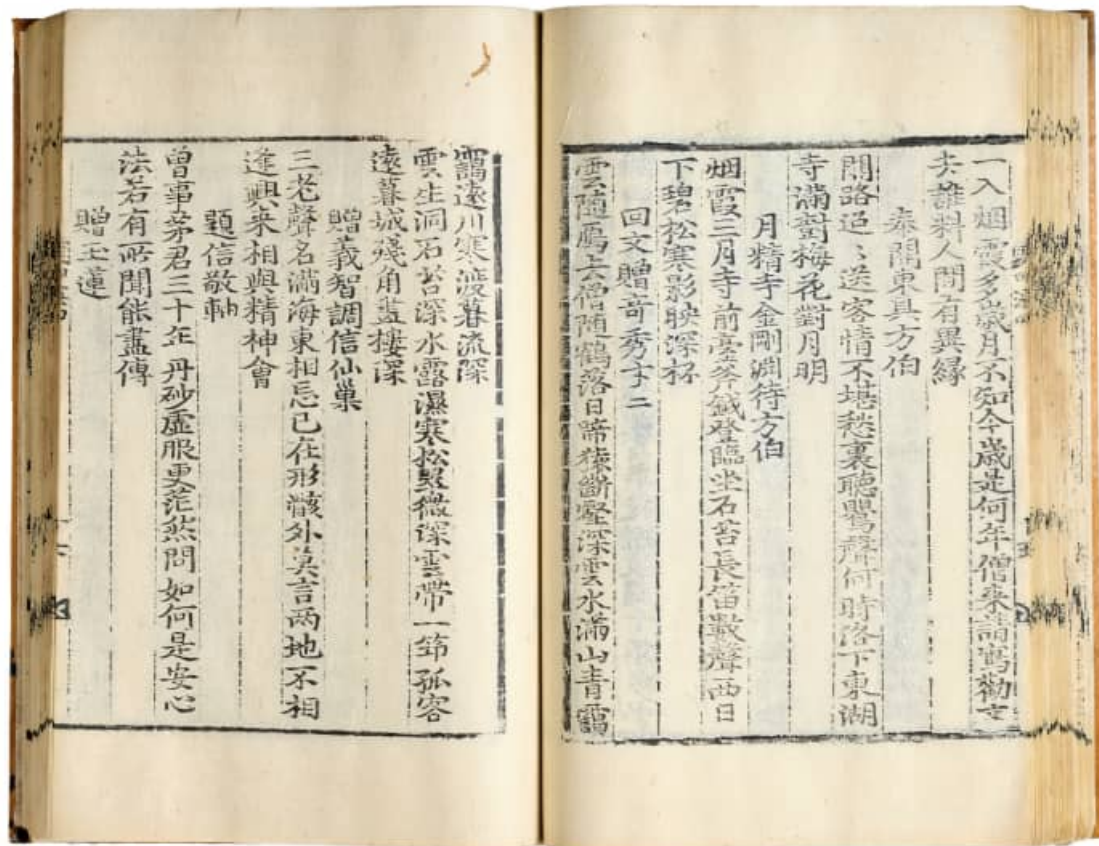 一入烟霞多歲月不知今歲是何年僧來請寫勸文
去誰料人間有異緣
奉關東具方伯
關路迢〻送客情不堪愁裏聽鸎聲何時落下東湖
寺滿對梅花對月明
月精寺金剛淵待方伯
烟霞三月寺前臺斧鉞登臨坐石苔長笛數聲西日
下碧松寒影映深杯
回文贈奇秀才二
雲随鴈去僧随鶴落日啼猿斷壑深雲水滿山青靄
靄遠川寒渡暮流深
雲生洞石苔深水露濕寒松翠微深雲帶一笻孤客
遠暮城殘角畫樓深
贈義智調信仙巢
三老聲名滿海東相忘已在形骸外莫言兩地不相
逢興來相與精神會
題信敬軸
曽事茅君三十年丹砂虛服更茫然問如何是安心
法若有所聞能盡傳
贈玉蓮